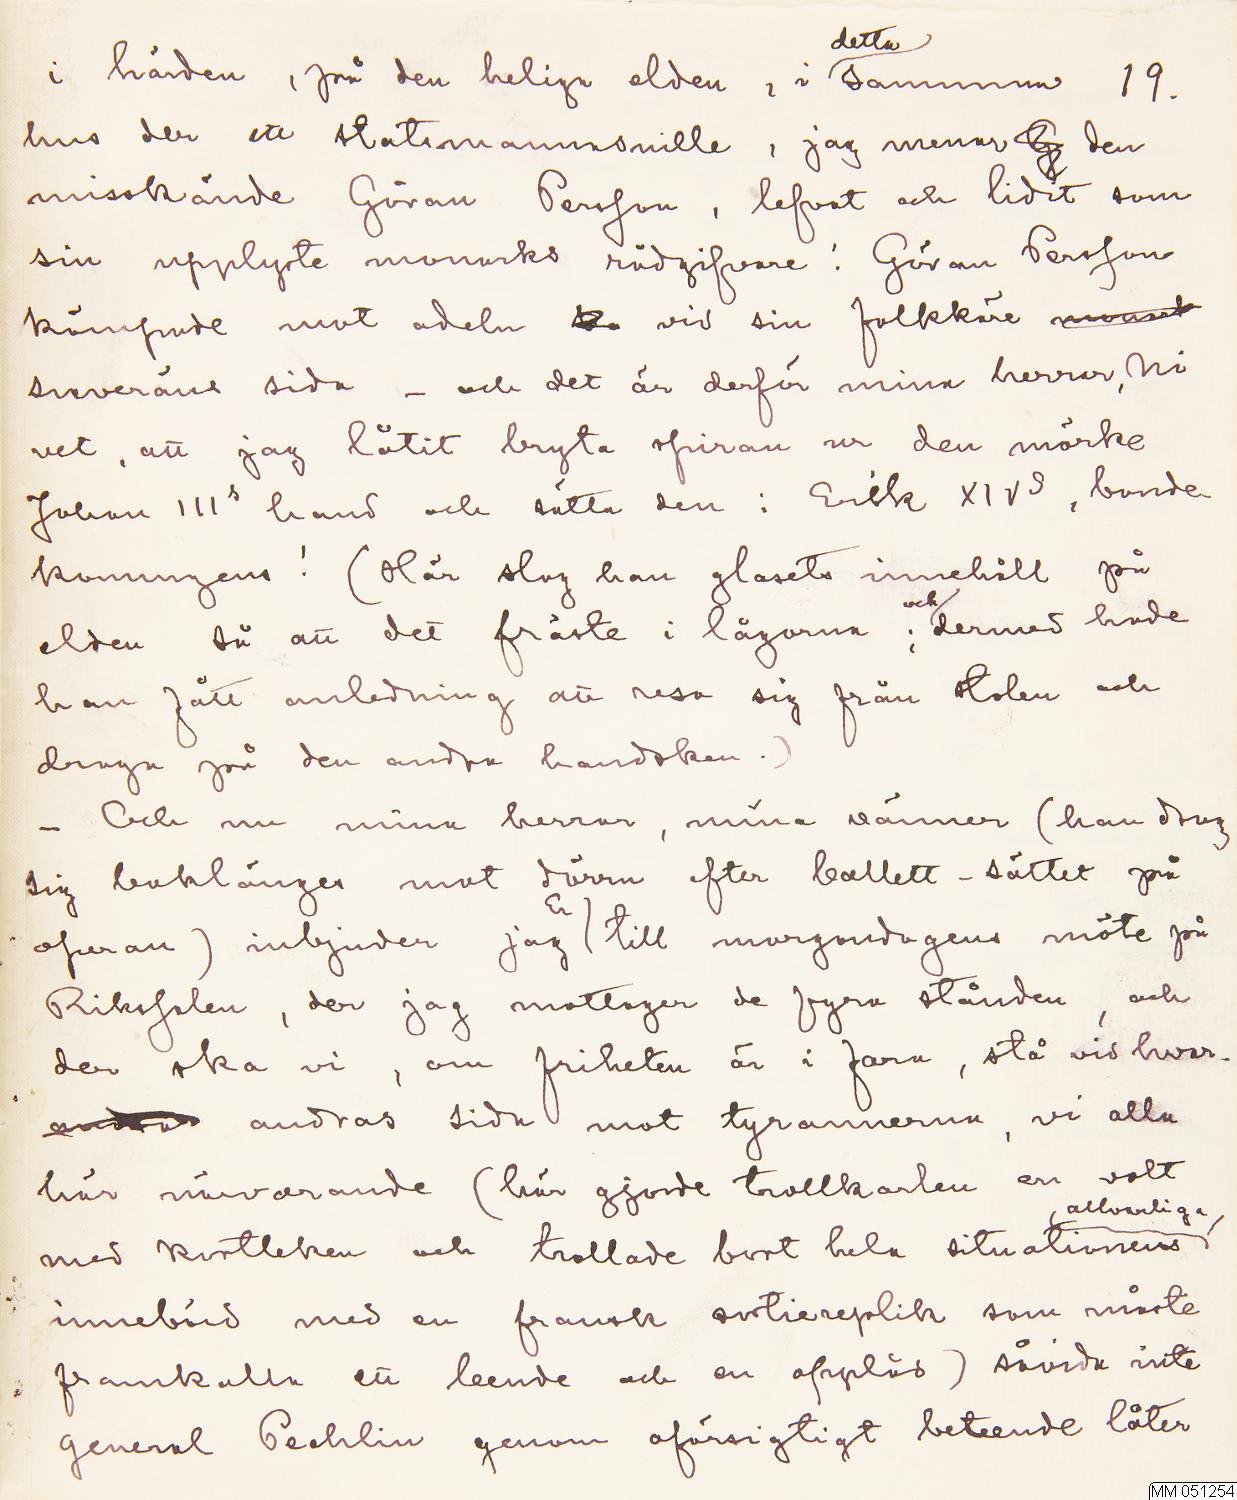 detta
i härden, på den heliga elden, i samma 19.
hus der ett statsmannasnille, jag menar den
misskände Göran Persson, lefvat och lidit som
sin upplyste monarks rådgifvare! Göran Persson
kämpade mot adeln vid sin folkkäre monark
suveräns sida – och det är derför mina herrar, Ni
vet, att jag låtit bryta spiran ur den mörke
Johan IIIs hand och sätta den i Erik XIVs, bonde-
konungens! (Här slog han glasets innehåll på
och
elden så att det fräste i lågorna; dermed hade
han fått anledning att resa sig från stolen och
draga på den andra handsken.)
– Och nu mina herrar, mina vänner (han drog
sig baklänges mot dörrn efter ballett-sättet på
Er
operan) inbjuder jag till morgondagens möte på
Rikssalen, der jag mottager de fyra stånden, och
der ska vi, om friheten är i fara, stå vid hvar-
andra andras sida mot tyrannerna, vi alla
här närvarande (här gjorde trollkarlen en volt
allvarliga
med kortleken och trollade bort hela situationens
innebörd med en fransk sortiereplik som måste
framkalla ett leende och en applås) såvida inte
general Pechlin genom oförsigtigt beteende låter
MM 051254